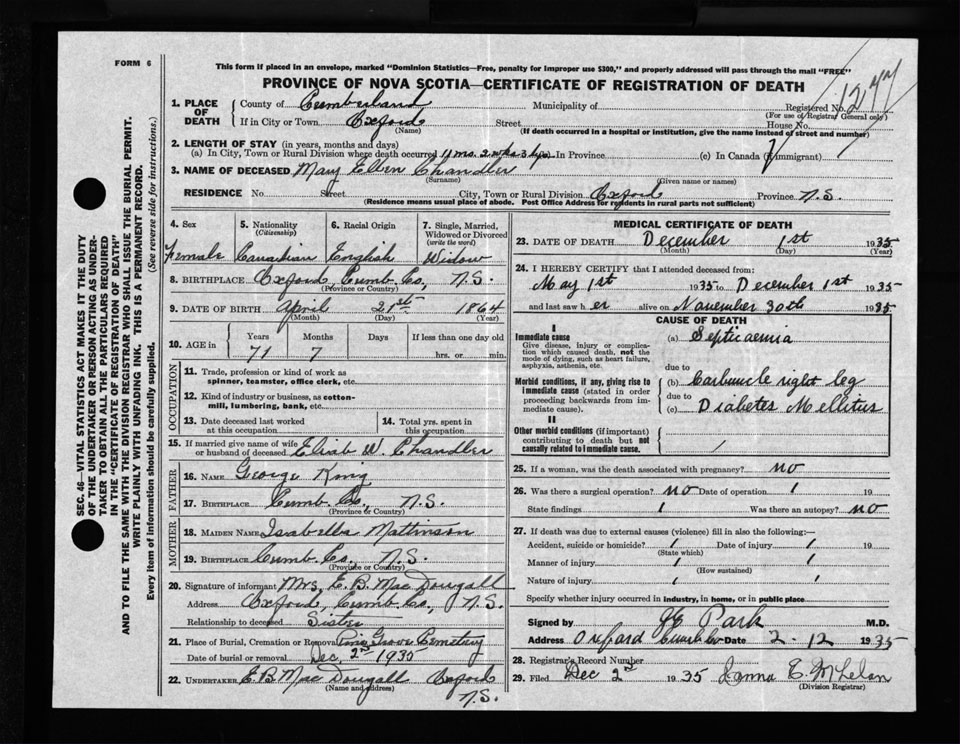 FORM 6
This form if placed in an envelope, marked "Dominion Statistics—Free, penalty for improper use $300," and properly addressed will pass through the mail "FREE"
PROVINCE OF NOVA SCOTIA—CERTIFICATE OF REGISTRATION OF DEATH
1277
1. PLACE OF DEATH
County of Cumberland Municipality of Registered No.
(For use of Registrar General only)
If in City or Town Oxford Street House No.
(Name) (If death occurred in a hospital or institution, give the name instead of street and number)
2. LENGTH OF STAY (in years, months and days)
(a) In City, Town or Rural Division where death occurred 11 mos. 2 wks 3 In Province (c) In Canada (if immigrant)
3. NAME OF DECEASED Mary Ellen Chandler
(Surname) (Given name or names)
RESIDENCE No. Street City, Town or Rural Division Oxford Province N.S.
(Residence means usual place of abode. Post Office Address for residents in rural parts not sufficient)
4. Sex 5. Nationality (Citizenship) 6. Racial Origin 7. Single, Married, Widowed or Divorced (write the word)
Female Canadian English Widow
8. BIRTHPLACE Oxford, Cumb. Co., N.S.
(Province or Country)
9. DATE OF BIRTH April 21st 1864
(Month) (Day) (Year)
10. AGE in Years Months Days If less than one day old
71 7 hrs. or min.
OCCUPATION
11. Trade, profession or kind of work as spinner, teamster, office clerk, etc.
12. Kind of industry or business, as cotton-mill, lumbering, bank, etc.
13. Date deceased last worked at this occupation 14. Total yrs. spent in this occupation
15. If married give name of wife or husband of deceased W. Chandler
FATHER
16. NAME George King
17. BIRTHPLACE Cumb. Co., N.S.
(Province or Country)
MOTHER
18. MAIDEN NAME Isabella Mattinson
19. BIRTHPLACE Cumb. Co., N.S.
(Province or Country)
20. Signature of informant Mrs. E. B. MacDougall
Address Oxford, Cumb. Co., N.S.
Relationship to deceased Sister
21. Place of Burial, Cremation or Removal Pine Grove Cemetery
Date of burial or removal Dec. 2nd 1935
22. UNDERTAKER E. B. MacDougall Oxford
(Name and address) N.S.
MEDICAL CERTIFICATE OF DEATH
23. DATE OF DEATH December 1st 1935
(Month) (Day) (Year)
24. I HEREBY CERTIFY that I attended deceased from:
May 1st 1935 to December 1st 1935
and last saw her alive on November 30th 1935
CAUSE OF DEATH
I
Immediate cause
Give disease, injury or complication which caused death, not the mode of dying, such as heart failure, asphyxia, asthenia, etc.
(a) Septicaemia
due to
Morbid conditions, if any, giving rise to immediate cause (stated in order proceeding backwards from immediate cause).
(b) Carbuncle right leg
due to
(c) Diabetes Mellitus
II
Other morbid conditions (if important) contributing to death but not causally related to immediate cause.
25. If a woman, was the death associated with pregnancy? no
26. Was there a surgical operation? no Date of operation 19
State findings Was there an autopsy? no
27. If death was due to external causes (violence) fill in also the following:—
Accident, suicide or homicide? Date of injury 19
(State which)
Manner of injury
(How sustained)
Nature of injury
Specify whether injury occurred in industry, in home, or in public place
Signed by Park M.D.
Address Oxford Cumb Co Date 2-12 1935
28. Registrar's Record Number
29. Filed Dec 2nd 1935
(Division Registrar)
SEC. 46—VITAL STATISTICS ACT MAKES IT THE DUTY
OF THE UNDERTAKER OR PERSON ACTING AS UNDER-
TAKER TO OBTAIN ALL THE PARTICULARS REQUIRED
IN THE "CERTIFICATE OF REGISTRATION OF DEATH"
AND TO FILE THE SAME WITH THE DIVISION REGISTRAR WHO SHALL ISSUE THE BURIAL PERMIT.
WRITE PLAINLY WITH UNFADING INK. THIS IS A PERMANENT RECORD.
Every item of information should be carefully supplied. (See reverse side for instructions.)